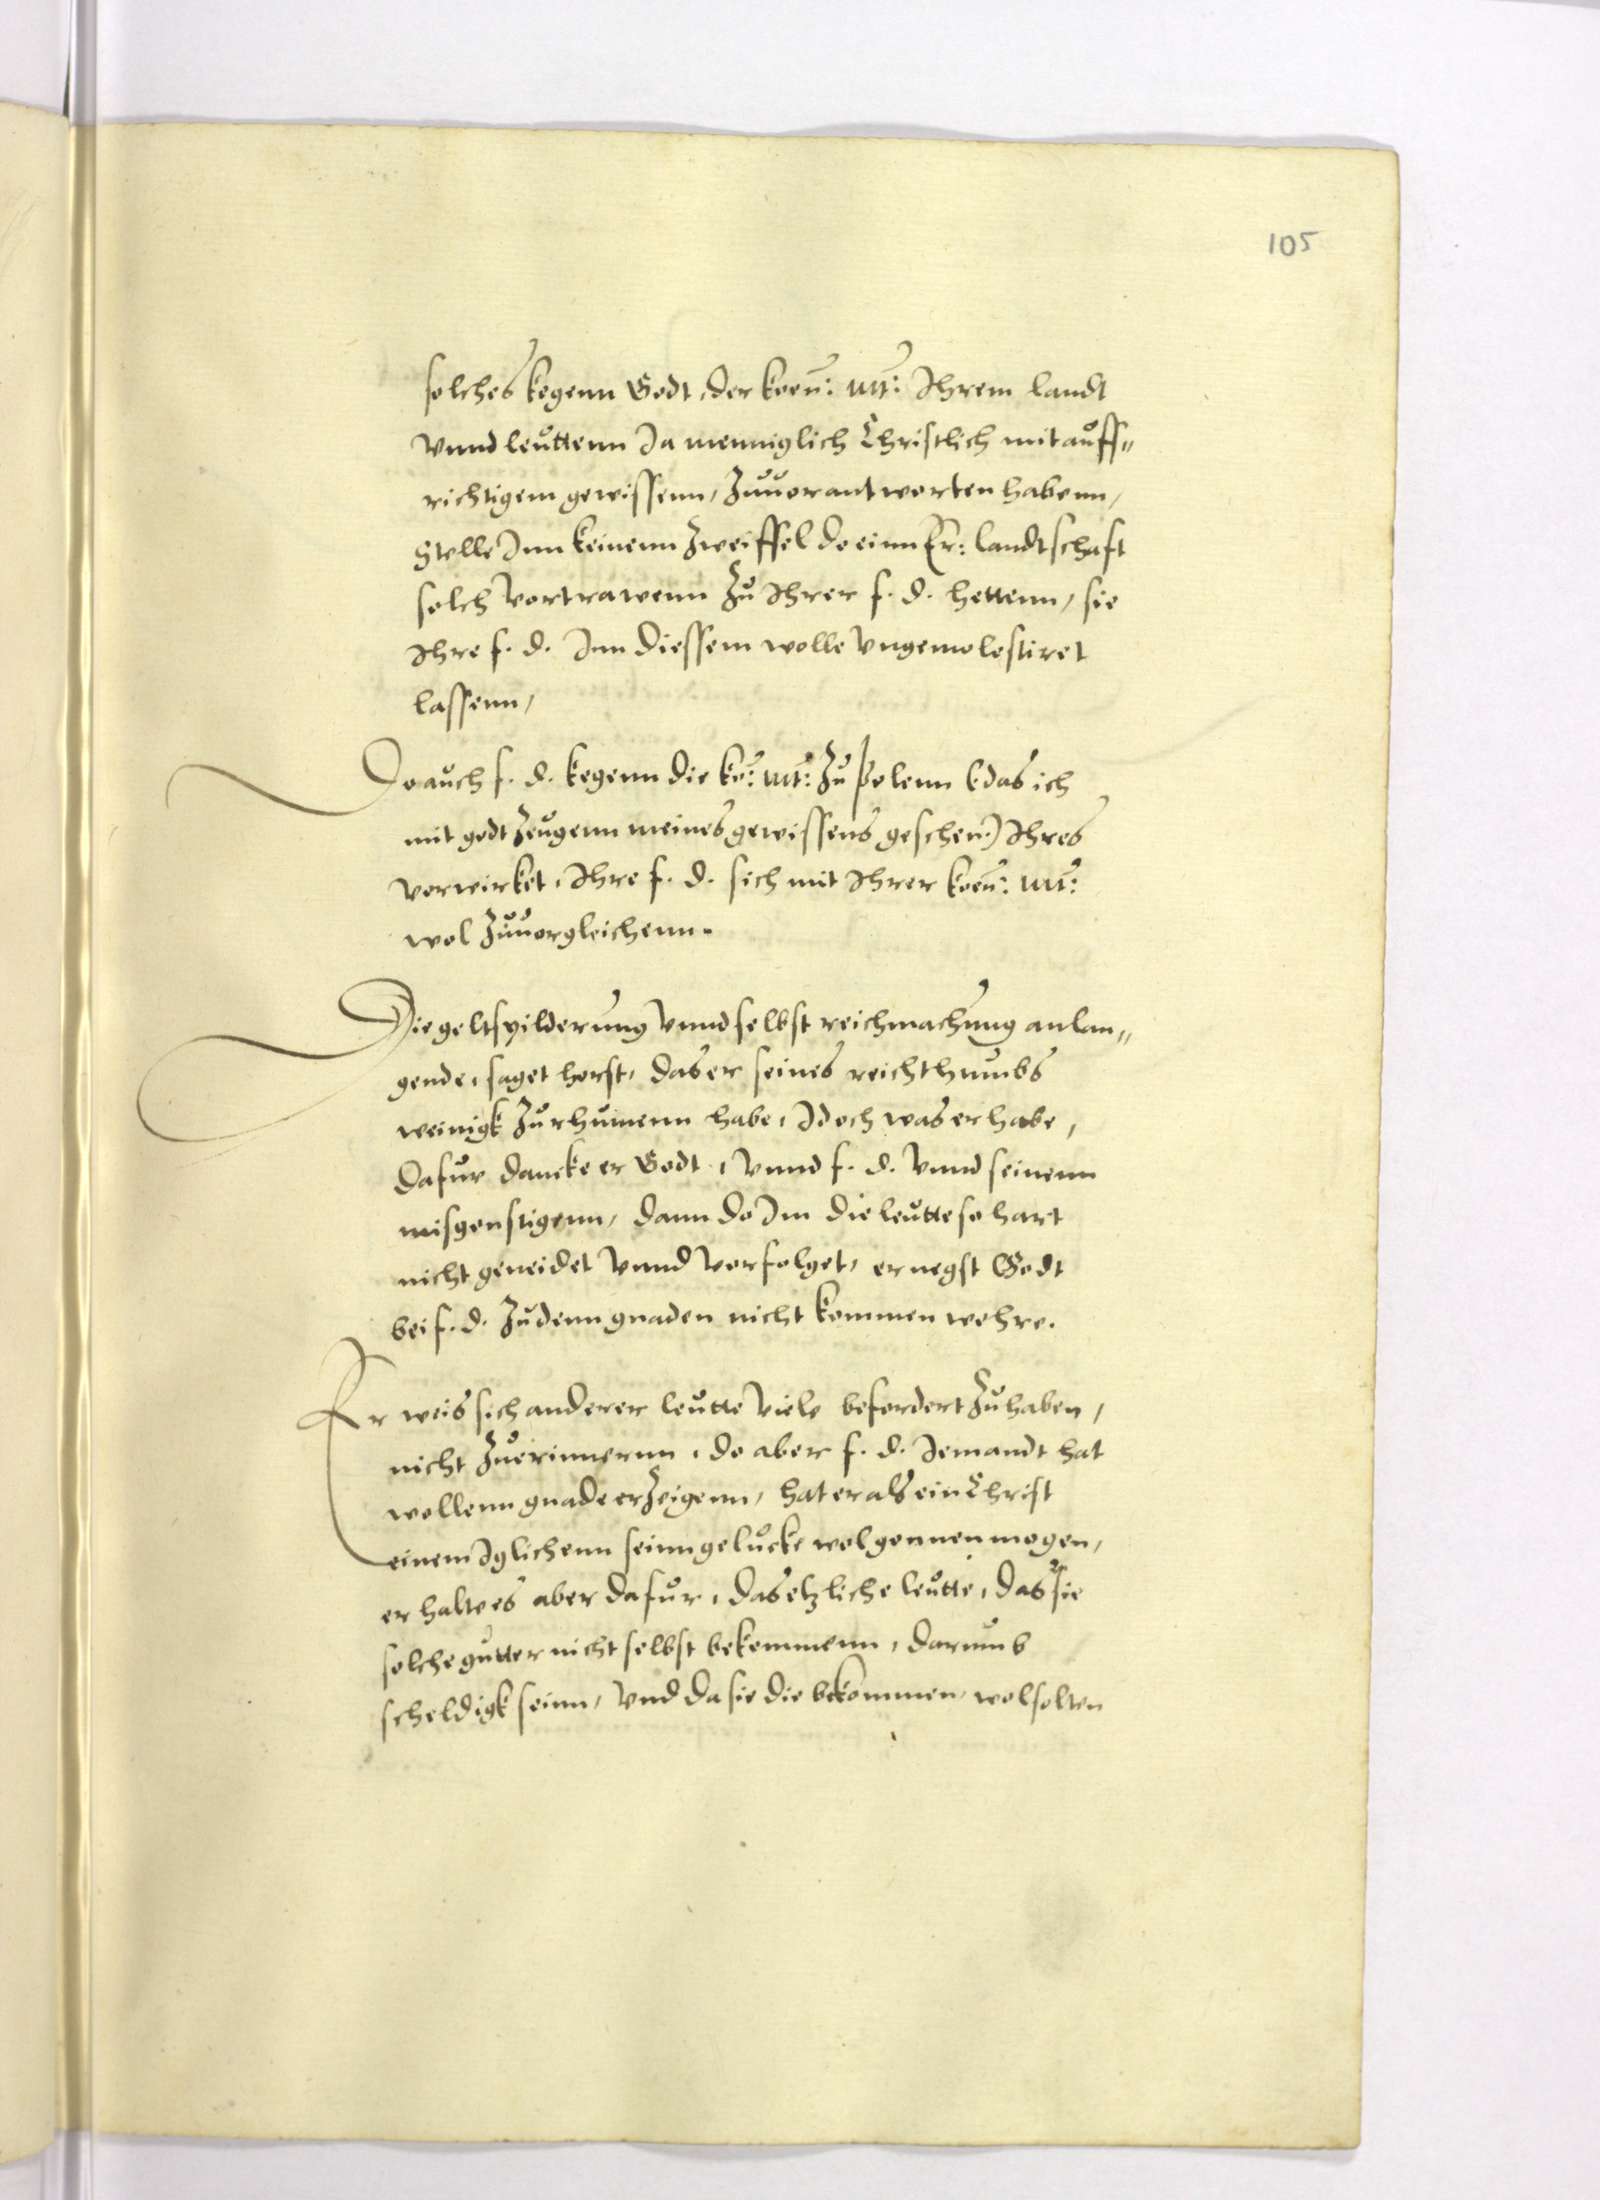 105
solches kegenn Godt, der koen: Mt: Ihrem landt
Vnnd leuttenn Ja menniglich Christlich mit auff„
richtigem gewissenn, Zuuorantworten habenn,
Stelle Inn keinenn Zweiffel do einn Er: landtschaft
solch Vortrawenn Zu Ihrer f. d. hettenn, sie
Ihre f. d. Inn diessem wolle Vngemolestiret
lassenn,
Do auch f. d. kegenn die ko: Mt: Zu Polenn (das ich
mit godt Zeugenn meines gewissens geschen) Ihres
Vorwirket, Ihre f. d. sich mit Ihrer koen: Mt:
wol Zuuorgleichenn.
Die geltspilderung Vnnd selbst reichmachung anlan„
gende, saget horst, das er seines reichthumbs
weinigk Zurhumenn habe, Idoch was er habe,
Dafur dancke er Godt, Vnnd f. d. Vnnd seinenn
misgonstigenn, dann do Im die leutte so hart
nicht geneidet Vnnd Vorfolget, er negst Godt
bei f. d. Zu denn gnaden nicht kommen wehre.
Er weis sich anderer leutte Viele befordert Zuhaben,
nicht Zuerinnernn, do aber f. d. Jemandt hat
wollenn gnade erZeigenn, hat er als ein Christ
einem Iglichenn seinn gelucke wol gonnen mogen,
er halte es aber dafur, das etzliche leutte, das sie
solche gutter nicht selbst bekommenn, darumb
scheldigk seinn, Vnd da sie die bekommen, wol solten